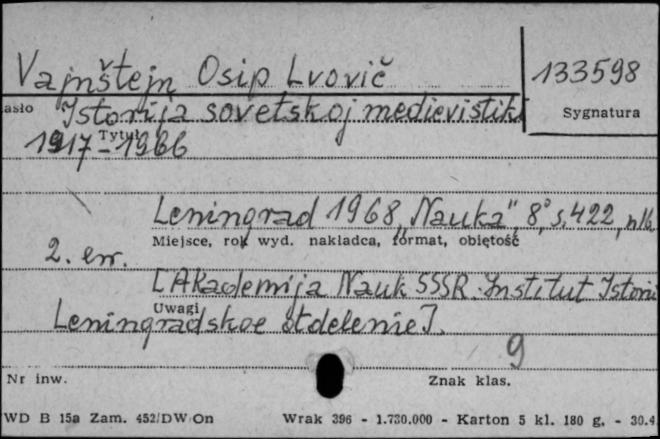 Vajnštejn Osip Lvovič
133598
asło
Istorija sovetskoj medievistiki
Sygnatura
Tytuł
1917-1966
Leningrad 1968 „Nauka", 8°, s. 422, nlb.
Miejsce, rok wyd. nakładca, format, objętość
[Akademija Nauk SSSR. Institut Istorii
Uwagi
Leningradskoe otdelenie].
9
Nr inw.
Znak klas.
WD B 15a Zam. 452/DW On Wrak 396 - 1.730.000 - Karton 5 kl. 180 g. - 30.4